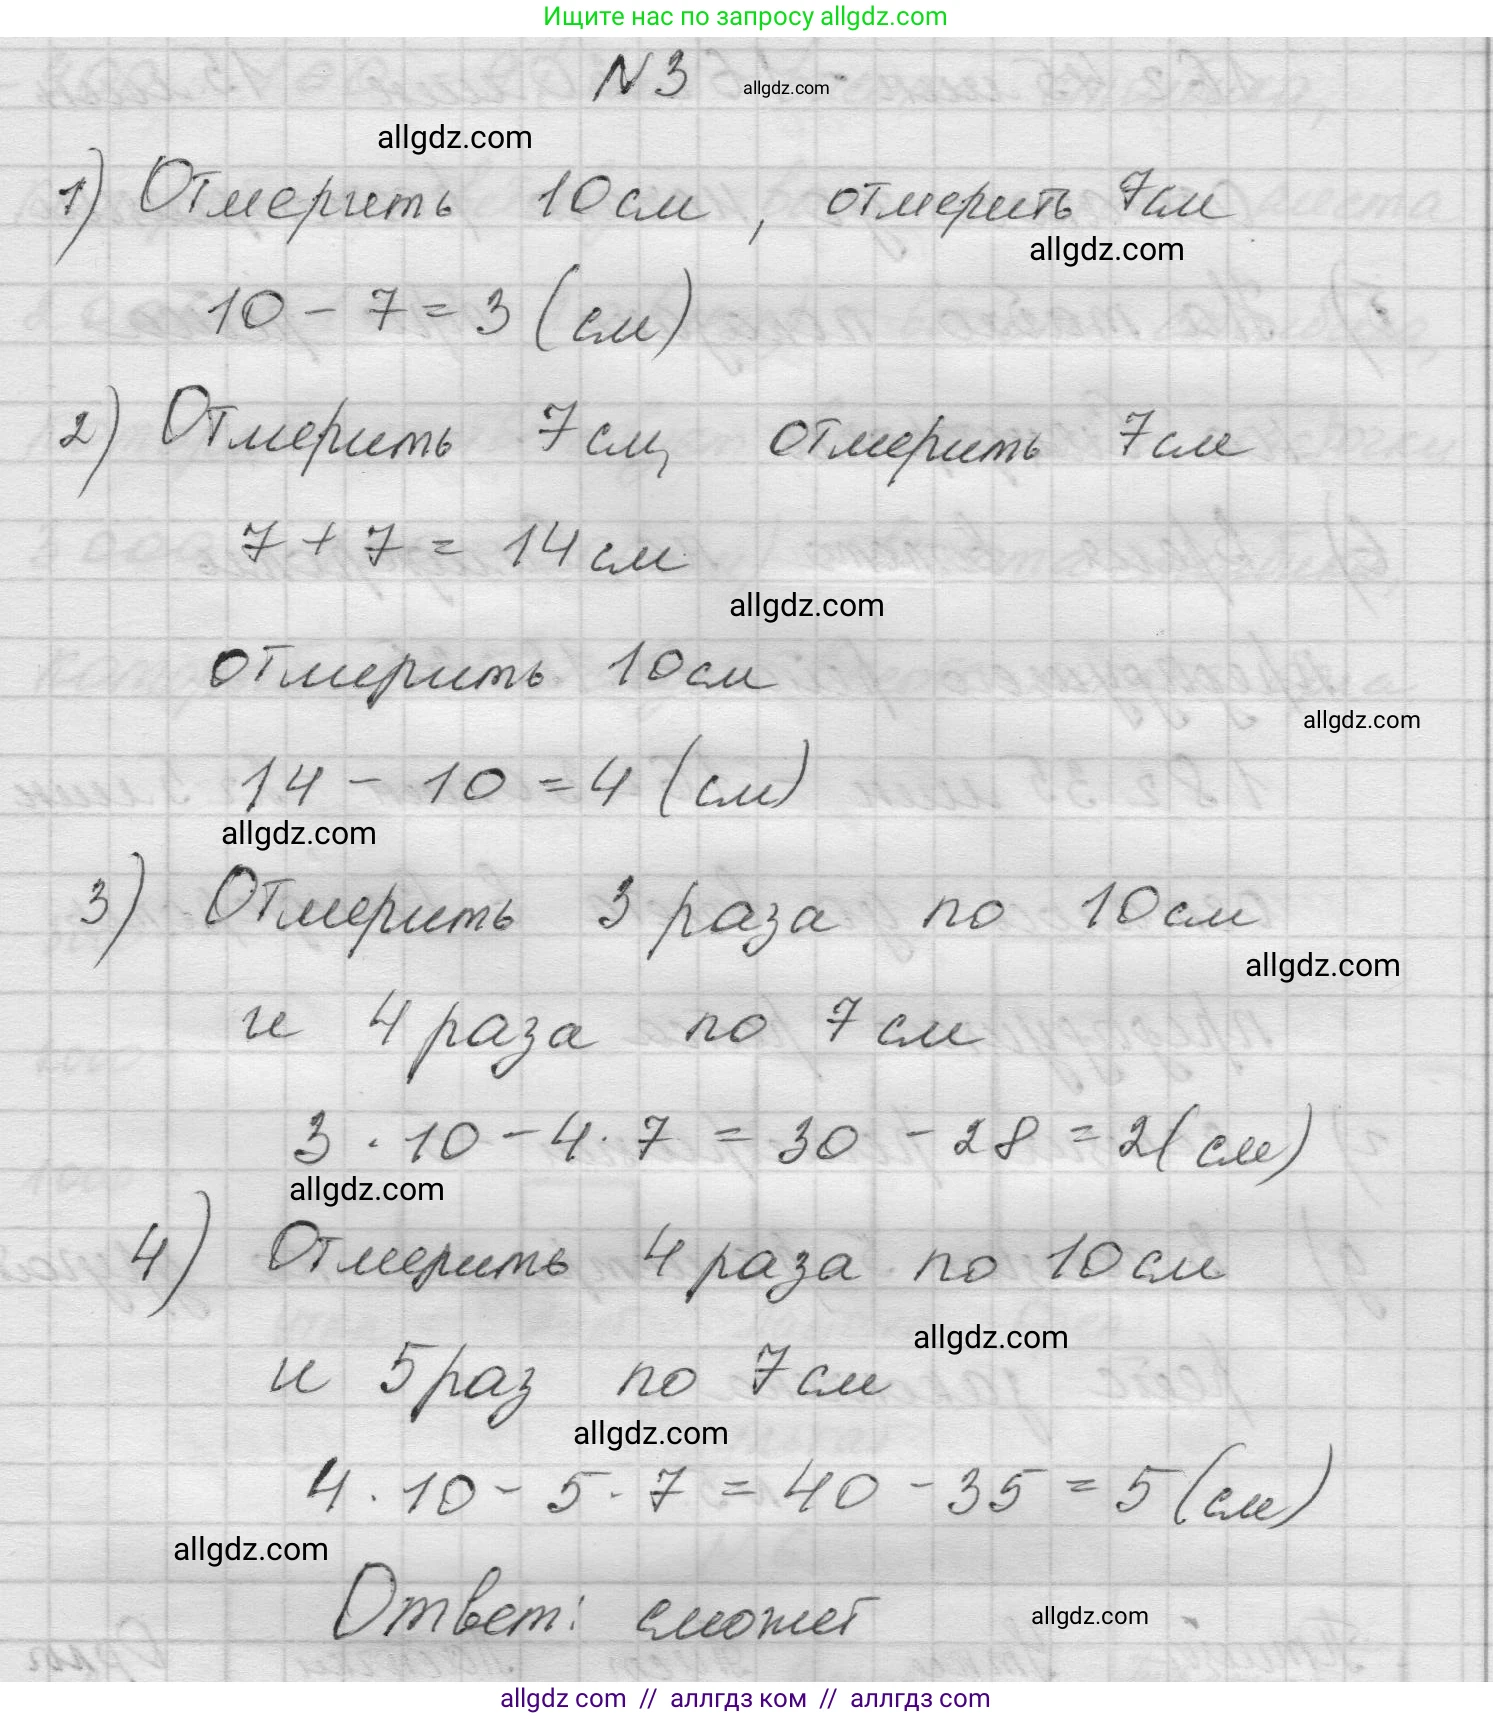 Ищите нас по запросу allgdz.com
N 3 allgdz.com
allgdz.com
1) Отмерить 10 см, отмерить 7 см
allgdz.com
10 - 7 = 3 (см)
2) Отмерить 7 см, отмерить 7 см
7 + 7 = 14 см
allgdz.com
отмерить 10 см
allgdz.com
14 - 10 = 4 (см)
allgdz.com
3) Отмерить 3 раза по 10 см
allgdz.com
и 4 раза по 7 см
3 · 10 - 4 · 7 = 30 - 28 = 2 (см)
allgdz.com
4) Отмерить 4 раза по 10 см
allgdz.com
и 5 раз по 7 см
allgdz.com
4 · 10 - 5 · 7 = 40 - 35 = 5 (см)
allgdz.com
Ответ: сможет allgdz.com
allgdz com // аллгдз ком // аллгдз com